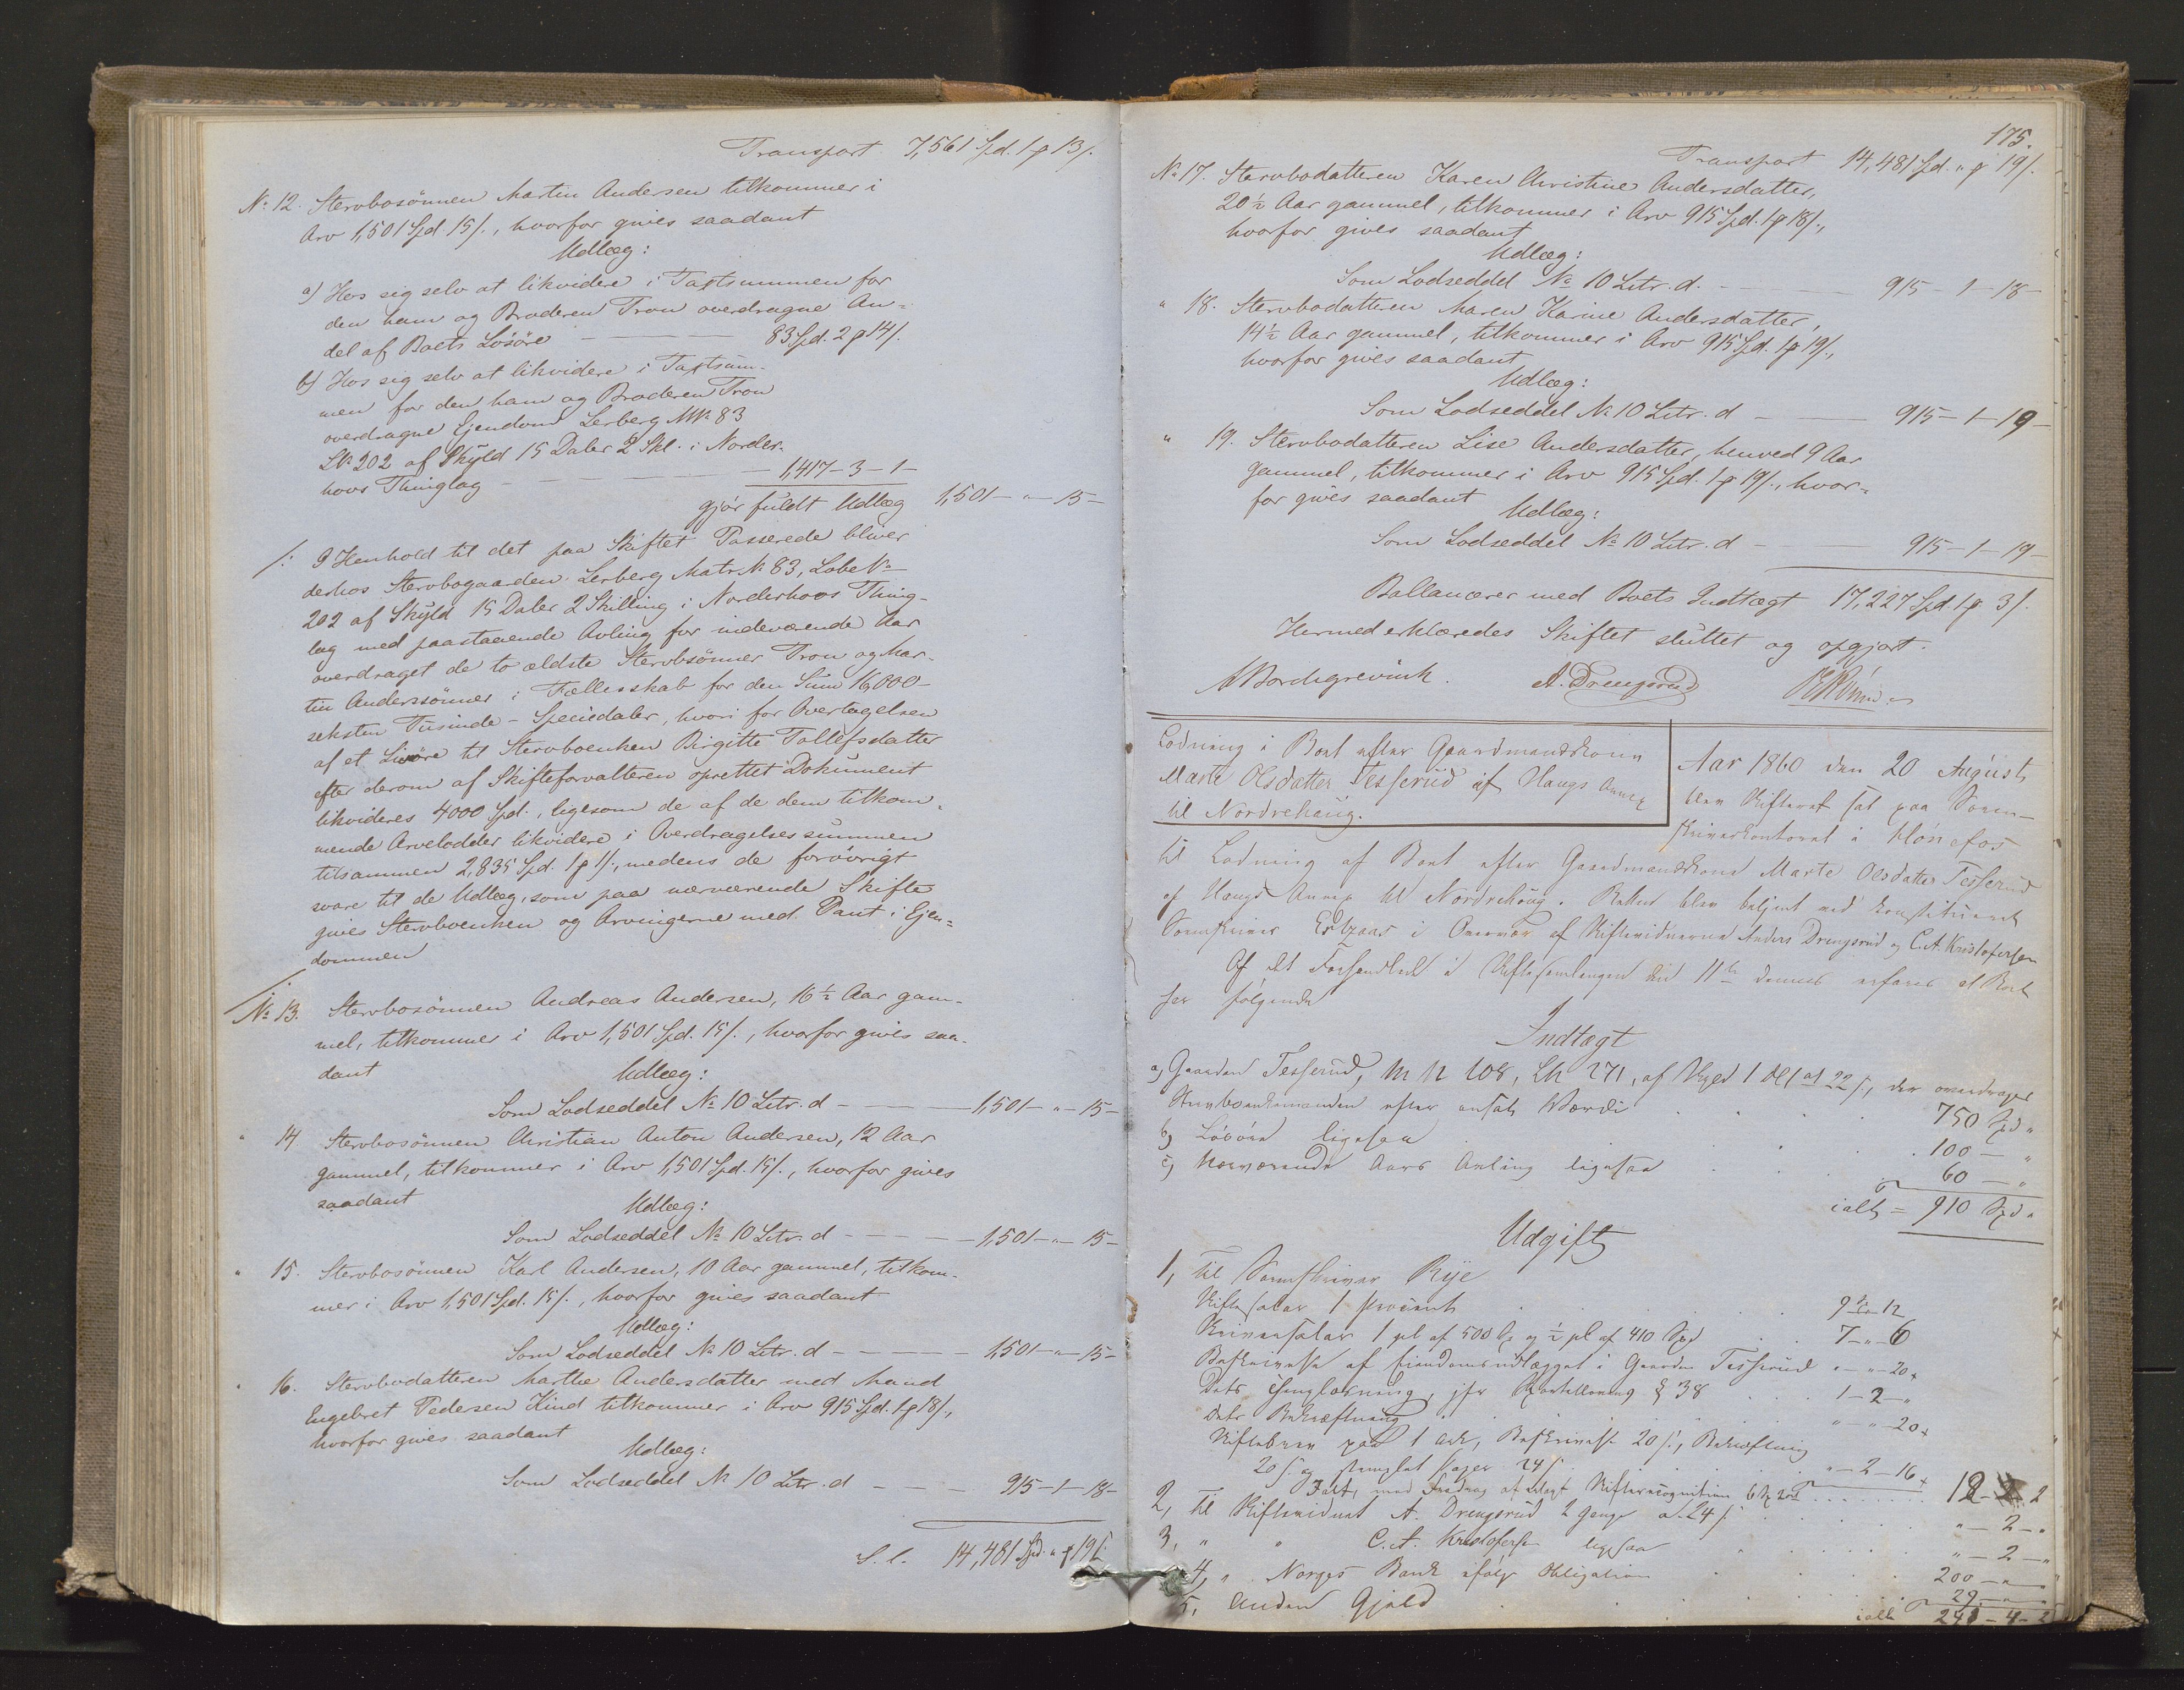 Transport 7,561 Spd. 1 ƿ 13 ſ.
No 12. Stervbosönnen Martin Andersen tilkommer i
Arv 1,501 Spd 15 ſ., hvorfor gives saadant
Udlæg:
a) Hos sig selv at likvidere i Taxtsummen for
den ham og Broderen Tron overdragne An-
del af Boets Lösöre — 83 Spd. 2 ƿ 14 ſ.
b) Hos sig selv at likvidere i Taxtsum-
men for den ham og Broderen Tron
overdragne Ejendom Lerberg MN. 83
LN. 202 af Skyld 15 Daler 2 Skl. i Norder-
hovs Thinglag — 1,417 - 3 - 1 -
gjör fuldt Udlæg 1,501 - " - 15 -
/: I Henhold til det paa Skiftet Passerede bliver
derhos Stervbogaarden Lerberg Matr. N. 83, Löbe No
202 af Skyld 15 Daler 2 Skilling i Norderhovs Thing-
lag med paastaaende Avling for indeværende Aar
overdraget de to ældste Stervbsönner Tron og Mar-
tin Anderssönner i Fællesskab for den Sum 16,000 -
seksten Tusinde - Speciedaler, hvori for Overtagelsen
af et Livöre til Stervboenken Birgitte Tollefsdatter
efter derom af Skifteforvalteren oprettet Dokument
likvideres 4000 Spd., ligesom de af de dem tilkom-
mende Arvelodder likvidere i Overdragelsessummen
tilsammen 2,835 Spd. 1 ƿ 1 ſ., medens de forövrigt
svare til de Udlæg, som paa nærværende Skifte
gives Stervboenken og Arvingerne med Pant i Ejen-
dommen
No 13. Stervbosönnen Andreas Andersen, 16 ½ Aar gam-
mel, tilkommer i Arv 1,501 Spd. 15 ſ., hvorfor gives saa-
dant
Udlæg:
Som Lodseddel No 10 Litr. d — 1,501 - " - 15 -
" 14 Stervbosönnen Christian Anton Andersen, 12 Aar
gammel, tilkommer i Arv 1,501 Spd. 15 ſ., hvorfor gives
saadant
Udlæg:
Som Lodseddel No 10 Litr. d — 1,501 - " - 15 -
" 15. Stervbosönnen Karl Andersen, 10 Aar gammel, tilkom-
mer i Arv 1,501 Spd. 15 ſ., hvorfor gives saadant
Udlæg:
Som Lodseddel No 10 Litr. d — 1,501 - " - 15 -
" 16. Stervbodatteren Marthe Andersdatter med Mand
Engebret Pedersen Kind tilkommer i Arv 915 Spd. 1 ƿ 18 ſ.,
hvorfor gives saadant
Udlæg:
Som Lodseddel No 10 Litr. d — 915 - 1 - 18 -
S. l. 14,481 Spd. " ƿ 19 ſ.
175.
Transport 14,481 Spd. " ƿ 19 ſ.
No 17. Stervbodatteren Karen Christine Andersdatter,
20 ½ Aar gammel, tilkommer i Arv 915 Spd. 1 ƿ 18 ſ.,
hvorfor gives saadant
Udlæg:
Som Lodseddel No 10 Litr. d. — 915 - 1 - 18 -
" 18. Stervbodatteren Maren Karine Andersdatter,
14 ½ Aar gammel, tilkommer i Arv 915 Spd. 1 ƿ 19 ſ.,
hvorfor gives saadant
Udlæg:
Som Lodseddel No 10 Litr. d — 915 - 1 - 19 -
" 19. Stervbodatteren Lise Andersdatter, henved 9 Aar
gammel, tilkommer i Arv 915 Spd. 1 ƿ 19 ſ., hvor-
for gives saadant
Udlæg:
Som Lodseddel No 10 Litr. d — 915 - 1 - 19 -
Ballancerer med Boets Indtægt 17,227 Spd. 1 ƿ 3 ſ.
Hermed erklæredes Skiftet sluttet og opgjort.
Borchgrevink. A. Drengsrud
Lodning i Boet efter Gaardmandskone
Marte Olsdatter Tesserud af Haugs Annex
til Nordrehaug.
Aar 1860 den 20 August
blev Skifteret sat paa Soren-
skriverkontoret i Hönefos
til Lodning af Boet efter Gaardmandskone Marte Olsdatter Tesserud
af Haugs Annex til Nordrehaug. Retten blev betjent med konstitueret
Sorenskriver i Overvær af Skiftevidnerne Anders Drengsrud og C. A. Kristofersen
Af det Forhandlede i Skiftesamlingen den 11te dennes erfares at Boet
har fölgende
Indtægt
a) Gaarden Tesserud, M N 108, LN 271, af Skyld 1 Dl 1 ort 22 ſ., der overdrages
Stervboenkemanden efter ansat Værdi . . . 750 Spd "
b) Lösöre ligesaa . . . 100 — "
c) Nærværende Aars Avling ligesaa . . . 60 — "
ialt = 910 Spd "
Udgift
1, Til Sorenskriver Rye
Skiftesalær 1 Procent . . . 9 - " - 12
Skriversalær 1 pCt af 500 Spd og ½ pCt af 410 Spd . . 7 - " - 6
Beskrivelse af Eiendomsudlægget i Gaarden Tesserud " - " - 20 +
Dets Thinglæsning, jfr § 38 . . 1 - 2 - "
Dets Bekræftning . . . " - " - 20 +
Skiftebrev paa 1 Ark, Beskrivelse 20 ſ., Bekræftning
20 ſ. og stemplet Papir 24 ſ. . . . " - 2 - 16 +
Ialt, med Fradrag af Skifterecognition . . . 12 - 2 2
2, Til Skiftevidnet A. Drengsrud 2 Gange a 24 ſ. . . . " - 2 - "
3, " " C. A. Kristofersen ligesaa . . . " - 2 - "
4, " Norges Bank ifölge Obligation . . . 200 - " - "
5, Anden Gjæld . . . 29 - " - "
ialt 241 - 4 - 2